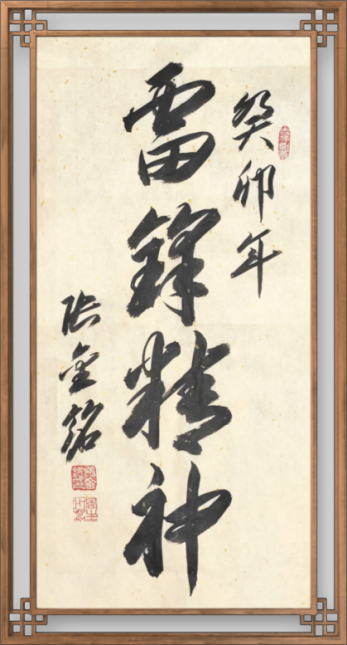 癸卯年
雷锋精神
张金铭